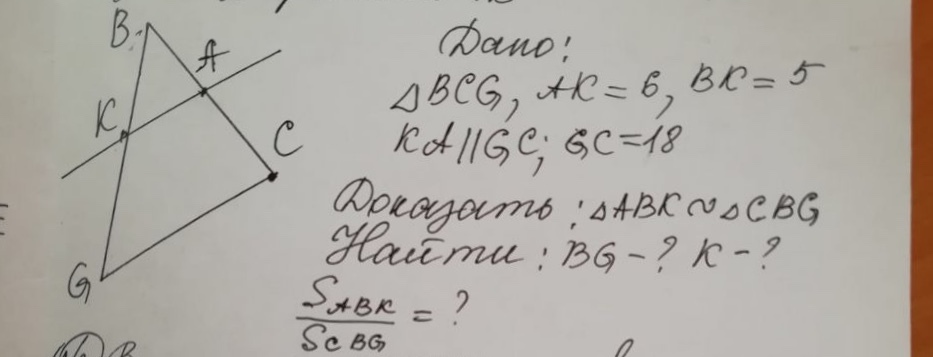 B
A
K
C
G
Дано:
△BCG, AK = 6, BK = 5
KA || GC; GC = 18
Доказать: △ABK ∾ △CBG
Найти: BG - ? K - ?
S_ABK / S_CBG = ?
B